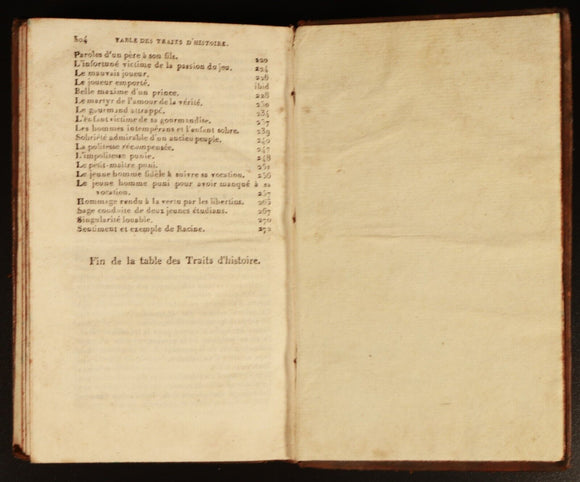 304 TABLE DES TRAITS D'HISTOIRE.
Paroles d'un père à son fils. 220
L'infortuné victime de la passion du jeu. 224
Le mauvais joueur. 226
Le joueur emporté. ibid
Belle maxime d'un prince. 228
Le martyr de l'amour de la vérité. 230
Le gourmand attrappé. 234
L'enfant victime de sa gourmandise. 237
Les hommes intempérans et l'enfant sobre. 239
Sobriété admirable d'un ancien peuple. 240
La politesse récompensée. 247
L'impolitesse punie. 248
Le petit-maître puni.
Le jeune homme fidèle à suivre sa vocation. 256
Le jeune homme puni pour avoir manqué à sa
vocation. 257
Hommage rendu à la vertu par les libertins. 265
Sage conduite de deux jeunes étudians. 267
Singularité louable. 270
Sentiment et exemple de Racine. 272
Fin de la table des Traits d'histoire.